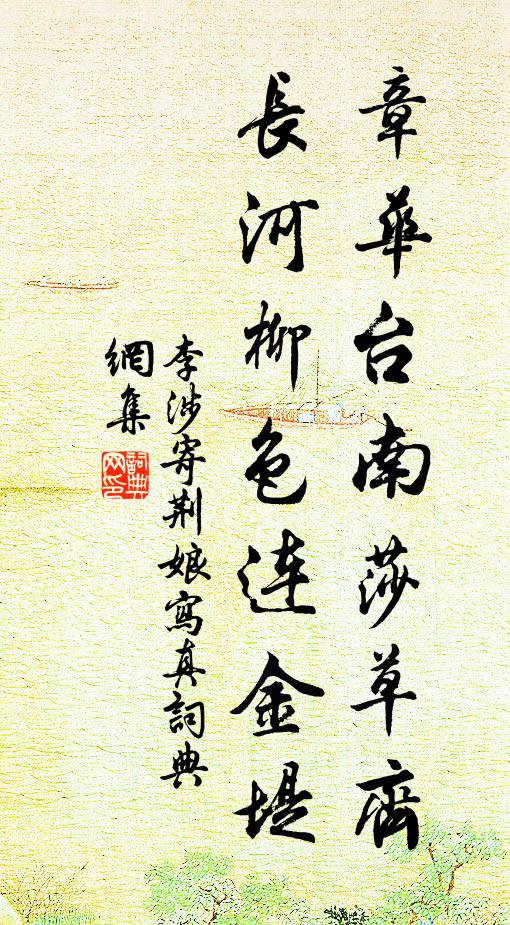 章華台南莎草齊
長河柳色連金堤
李涉寄荆娘寫真詞典
網集
詞典
网印